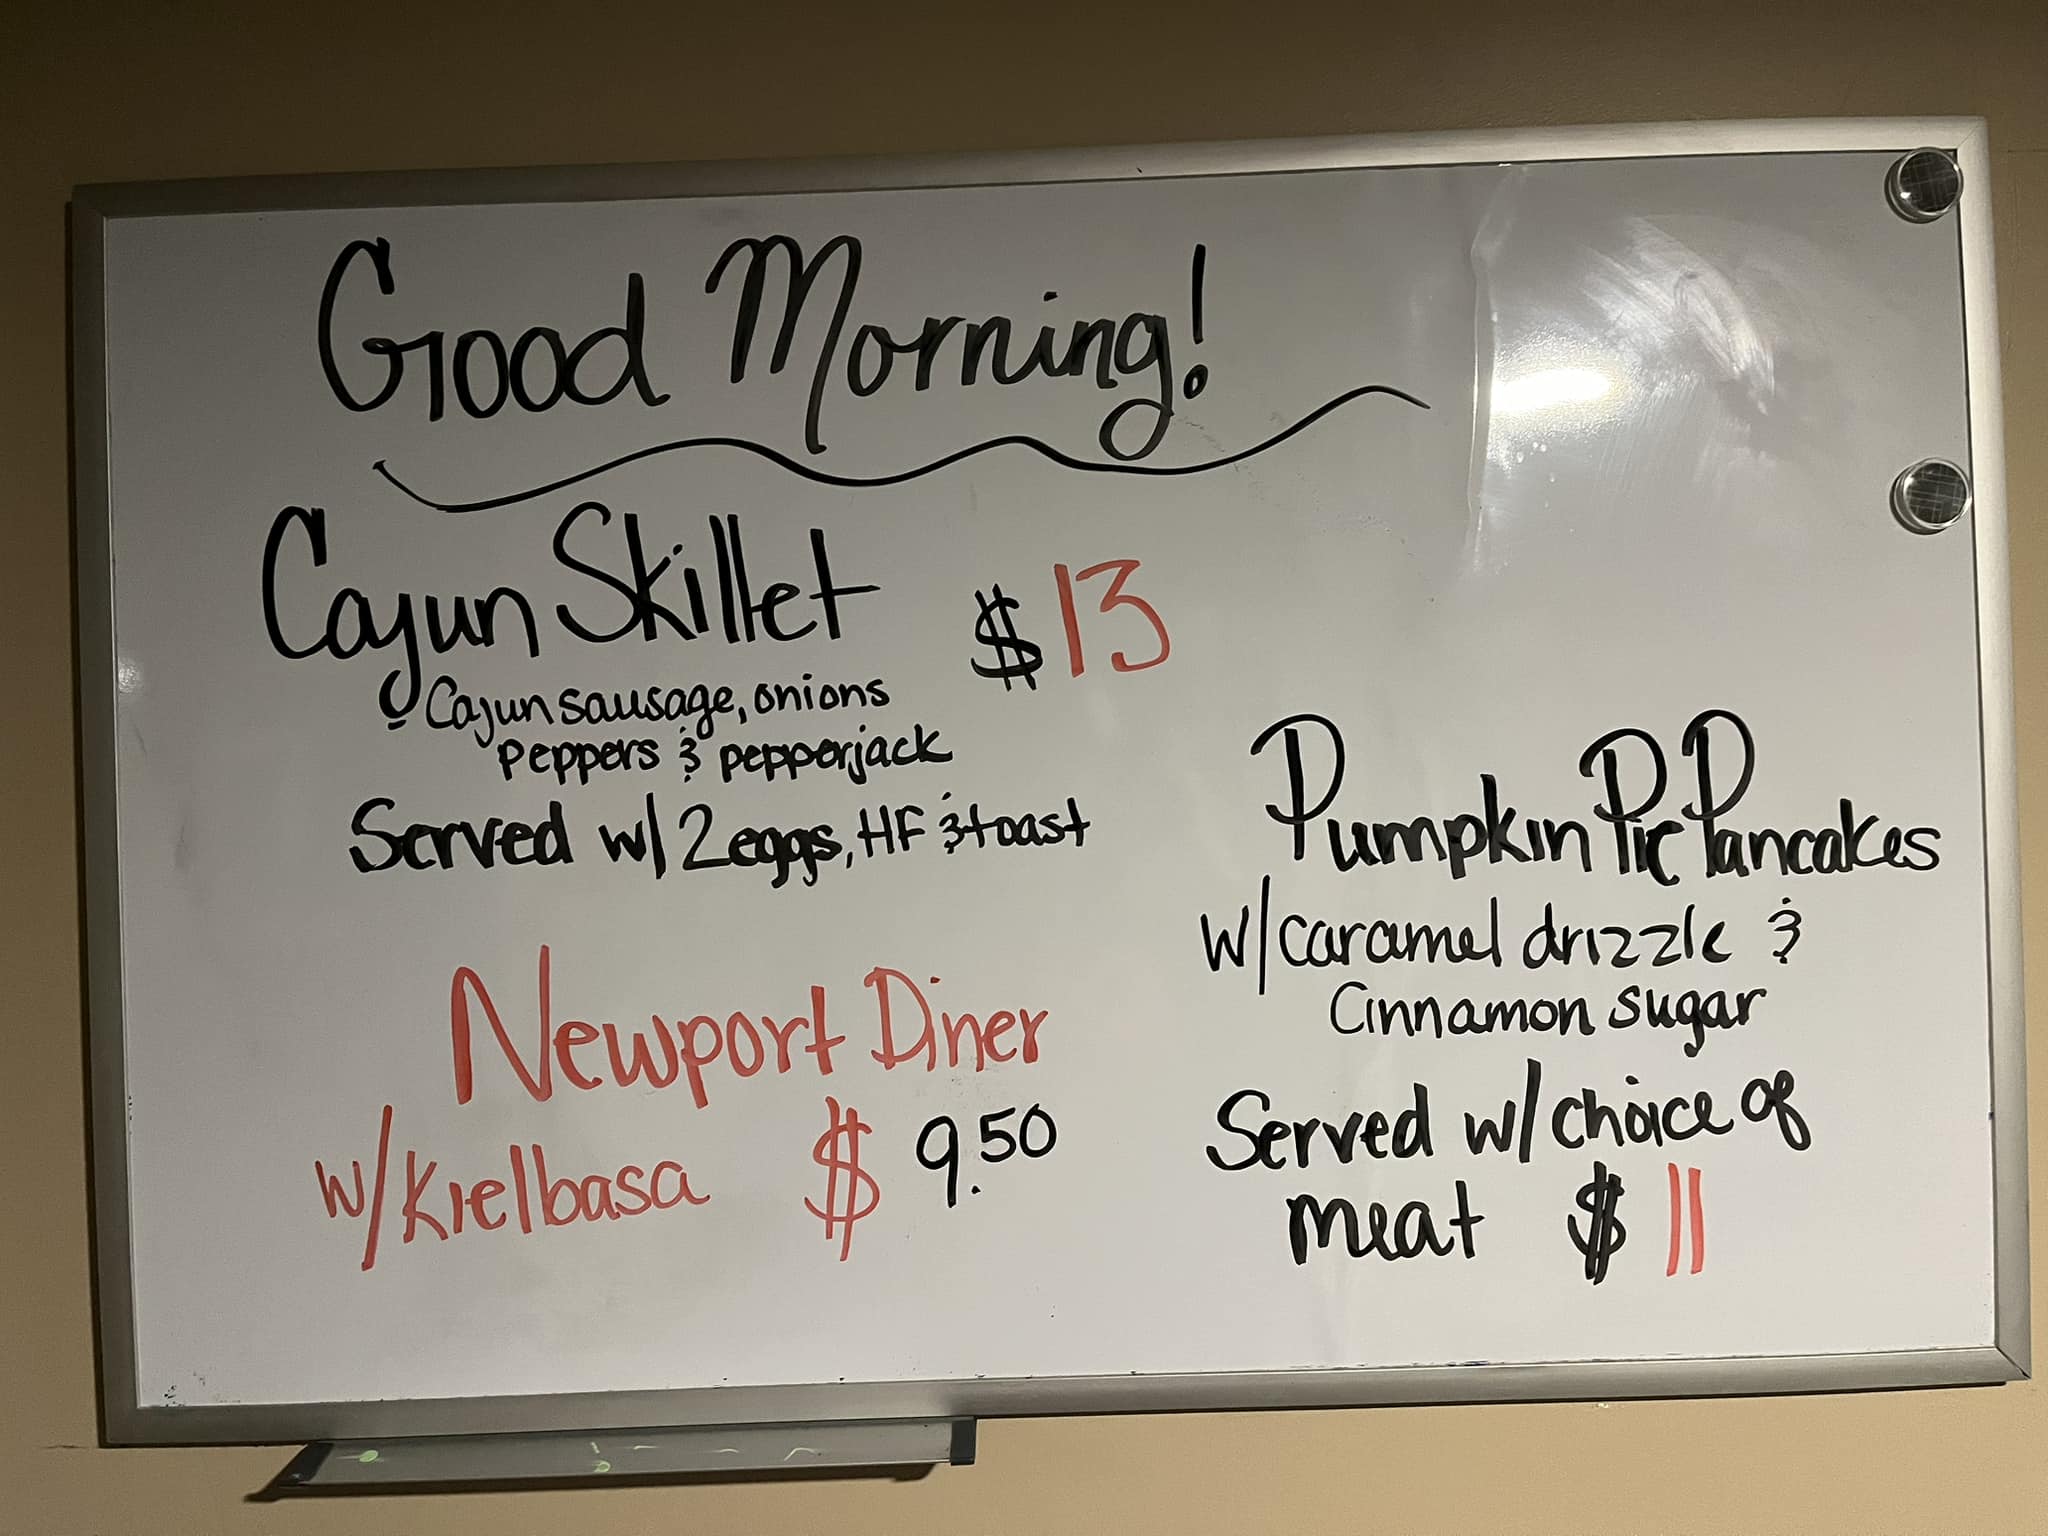 Good Morning!
Cajun Skillet $13
Cajun sausage, onions
peppers & pepperjack
Served w/ 2 eggs, HF & toast
Newport Diner
w/Kielbasa $ 9.50
Pumpkin Pie Pancakes
w/caramel drizzle &
Cinnamon sugar
Served w/choice of
meat $ 11